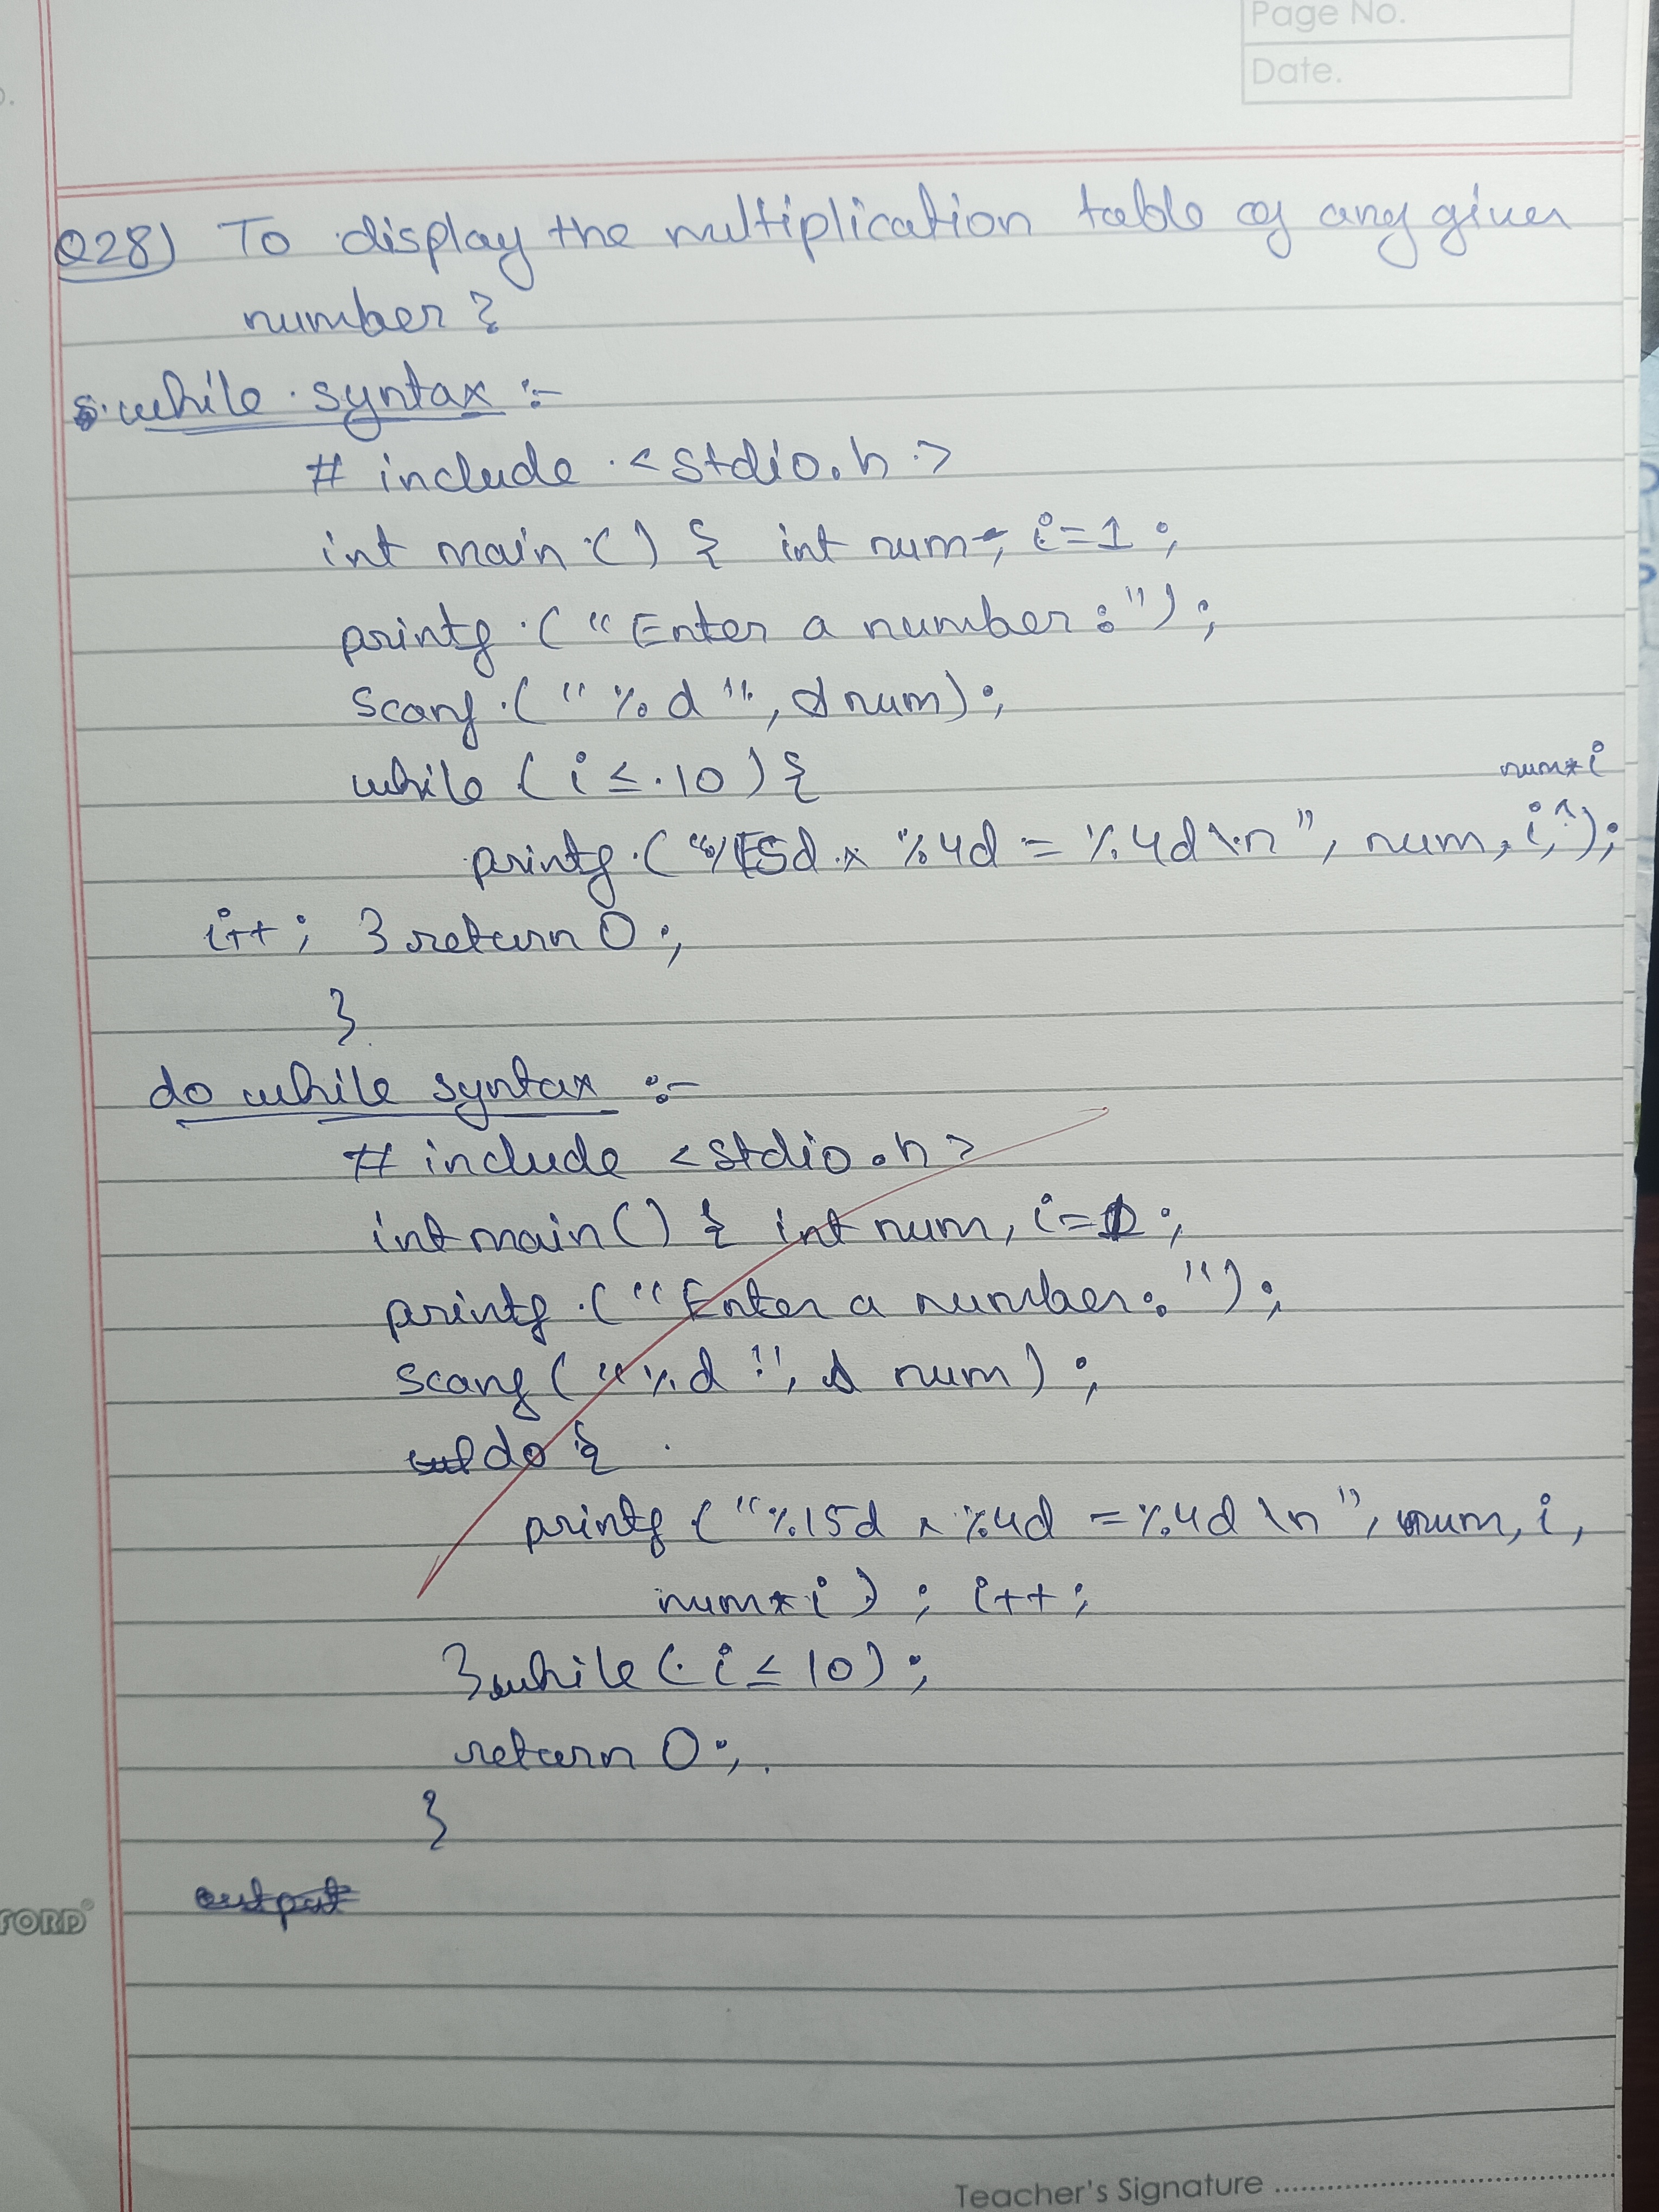 Page No.
Date.
Q28) To display the multiplication table of any given
number?
while syntax :-
# include <stdio.h>
int main () { int num, i=1;
printf ("Enter a number:");
scanf ("%d", &num);
while (i ≤ 10) {
num*i
printf ("%15d x %4d = %4d\n", num, i,^);
i++; } return 0;
}
do while syntax :-
# include <stdio.h>
int main() { int num, i=1;
printf ("Enter a number:");
scanf ("%d", & num);
do {
printf ("%15d x %4d = %4d \n", num, i,
num*i); i++;
} while (i ≤ 10);
return 0;
}
output
FORD
Teacher's Signature